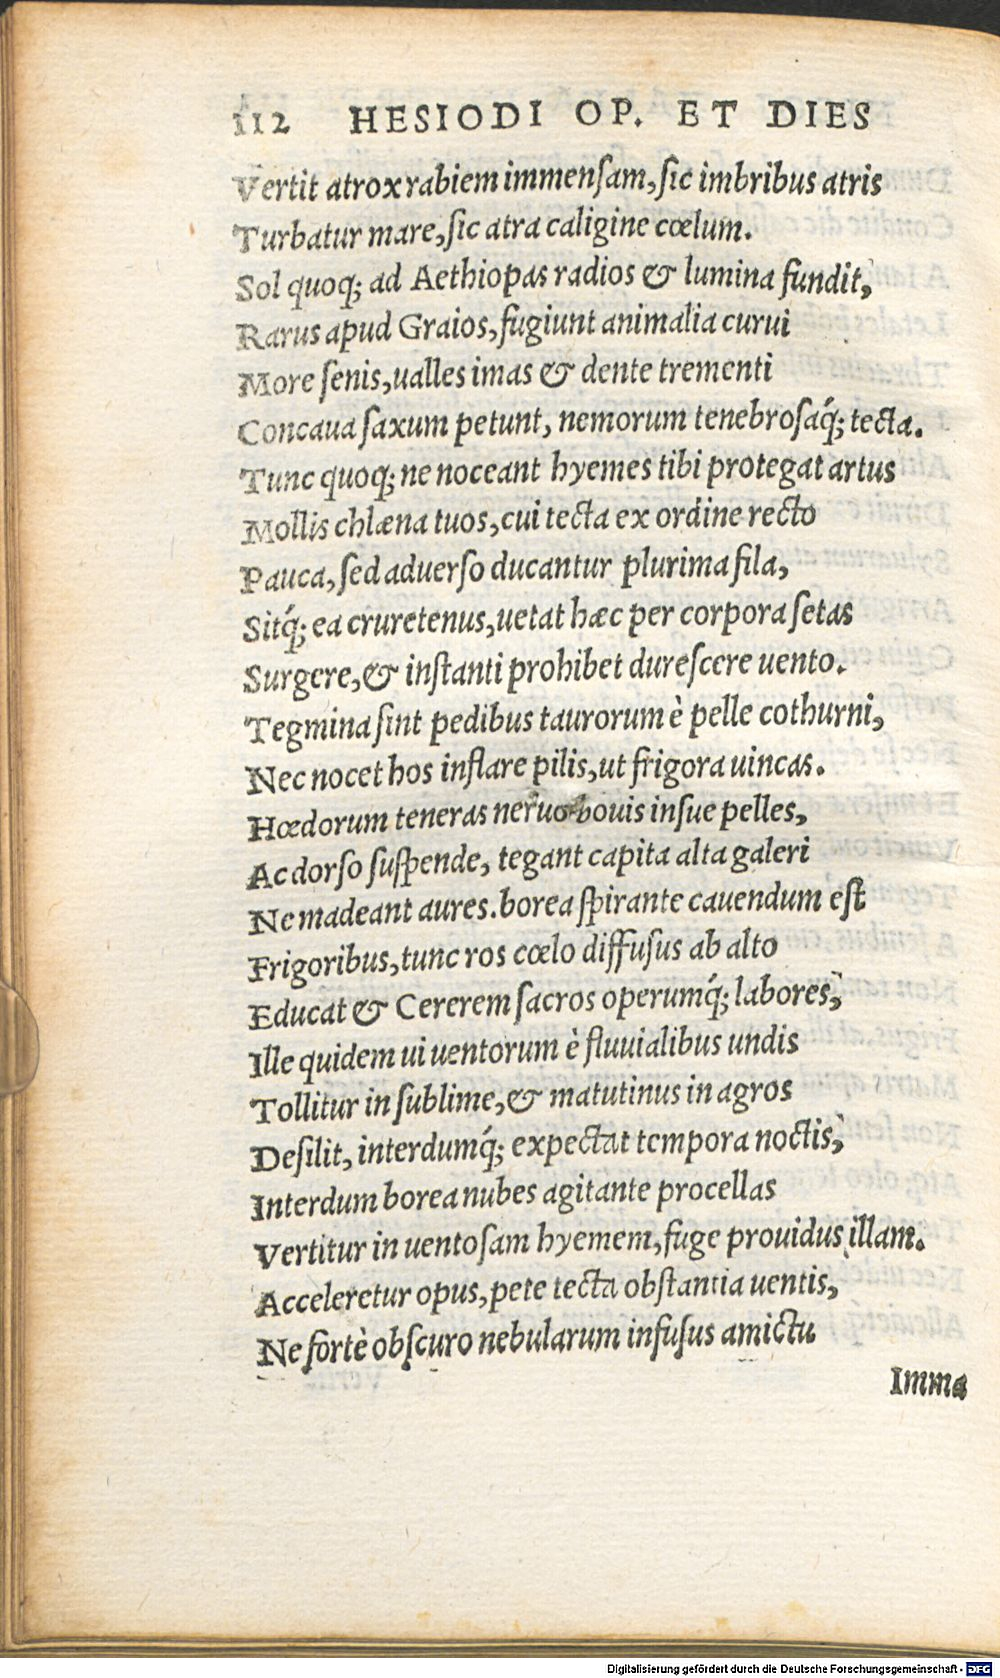 112 HESIODI OP. ET DIES
Vertit atrox rabiem immensam, sic imbribus atris
Turbatur mare, sic atra caligine cœlum.
Sol quoq; ad Aethiopas radios & lumina fundit,
Rarus apud Graios, fugiunt animalia curui
More senis, ualles imas & dente trementi
Concaua saxum petunt, nemorum tenebrosaq́; tecta.
Tunc quoq; ne noceant hyemes tibi protegat artus
Mollis chlæna tuos, cui tecta ex ordine recto
Pauca, sed aduerso ducantur plurima fila,
Sitq́; ea cruretenus, uetat hæc per corpora setas
Surgere, & instanti prohibet durescere uento.
Tegmina sint pedibus taurorum è pelle cothurni,
Nec nocet hos inflare pilis, ut frigora uincas.
Hœdorum teneras neruo bouis insue pelles,
Ac dorso suspende, tegant capita alta galeri
Ne madeant aures. borea spirante cauendum est
Frigoribus, tunc ros cœlo diffusus ab alto
Educat & Cererem sacros operumq́; labores,
Ille quidem ui uentorum è fluuialibus undis
Tollitur in sublime, & matutinus in agros
Desilit, interdumq́; expectat tempora noctis,
Interdum borea nubes agitante procellas
Vertitur in uentosam hyemem, fuge prouidus illam.
Acceleretur opus, pete tecta obstantia uentis,
Ne fortè obscuro nebularum infusus amictu
Imma
Digitalisierung gefördert durch die Deutsche Forschungsgemeinschaft - DFG